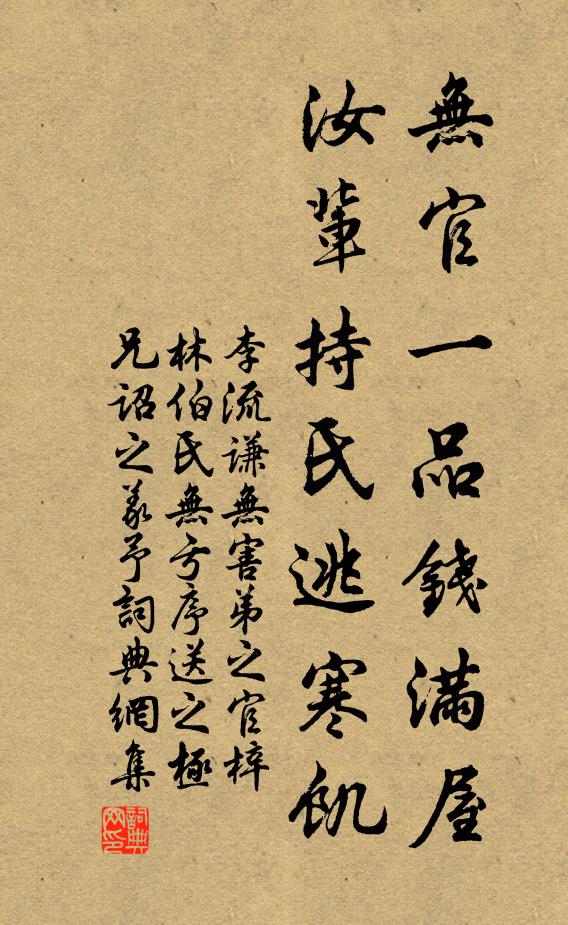 無官一品錢滿屋
汝輩持氏逃寒飢
李流謙無害弟之官梓
林伯氏無亏序送之極
兄詔之義予詞典網集
詞典网印